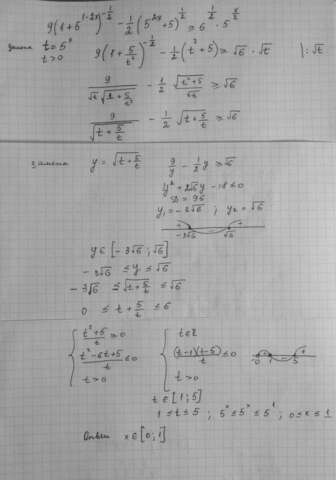 9(1+5^{1-2x})^{-\frac{1}{2}} - \frac{1}{2}(5^{2x}+5)^{\frac{1}{2}} ≥ 6^{\frac{1}{2}} · 5^{\frac{x}{2}}
замена t=5^x 9(1+\frac{5}{t^2})^{-\frac{1}{2}} - \frac{1}{2}(t^2+5) ≥ √6 · √t |: √t
t>0
\frac{9}{√t √{t+\frac{5}{t^2}}} - \frac{1}{2} \frac{√{t^2+5}}{√t} ≥ √6
\frac{9}{√{t+\frac{5}{t}}} - \frac{1}{2} √{t+\frac{5}{t}} ≥ √6
замена y = √{t+\frac{5}{t}} \frac{9}{y} - \frac{1}{2}y ≥ √6
y^2+2√6y-18≤0
D=96
y_1=-3√6 ; y_2=√6
+ - +
-3√6 √6
y∈[-3√6 ; √6]
-3√6 ≤ y ≤ √6
-3√6 ≤ √{t+\frac{5}{t}} ≤ √6
0 ≤ t+\frac{5}{t} ≤ 6
\frac{t^2+5}{t} ≥ 0 t∈R
\frac{t^2-6t+5}{t} ≤ 0 \frac{(t-1)(t-5)}{t} ≤ 0 0 1 5
t>0 t>0
t∈[1;5]
1≤t≤5 ; 5^0≤5^x≤5^1 ; 0≤x≤1
Ответ x∈[0;1]